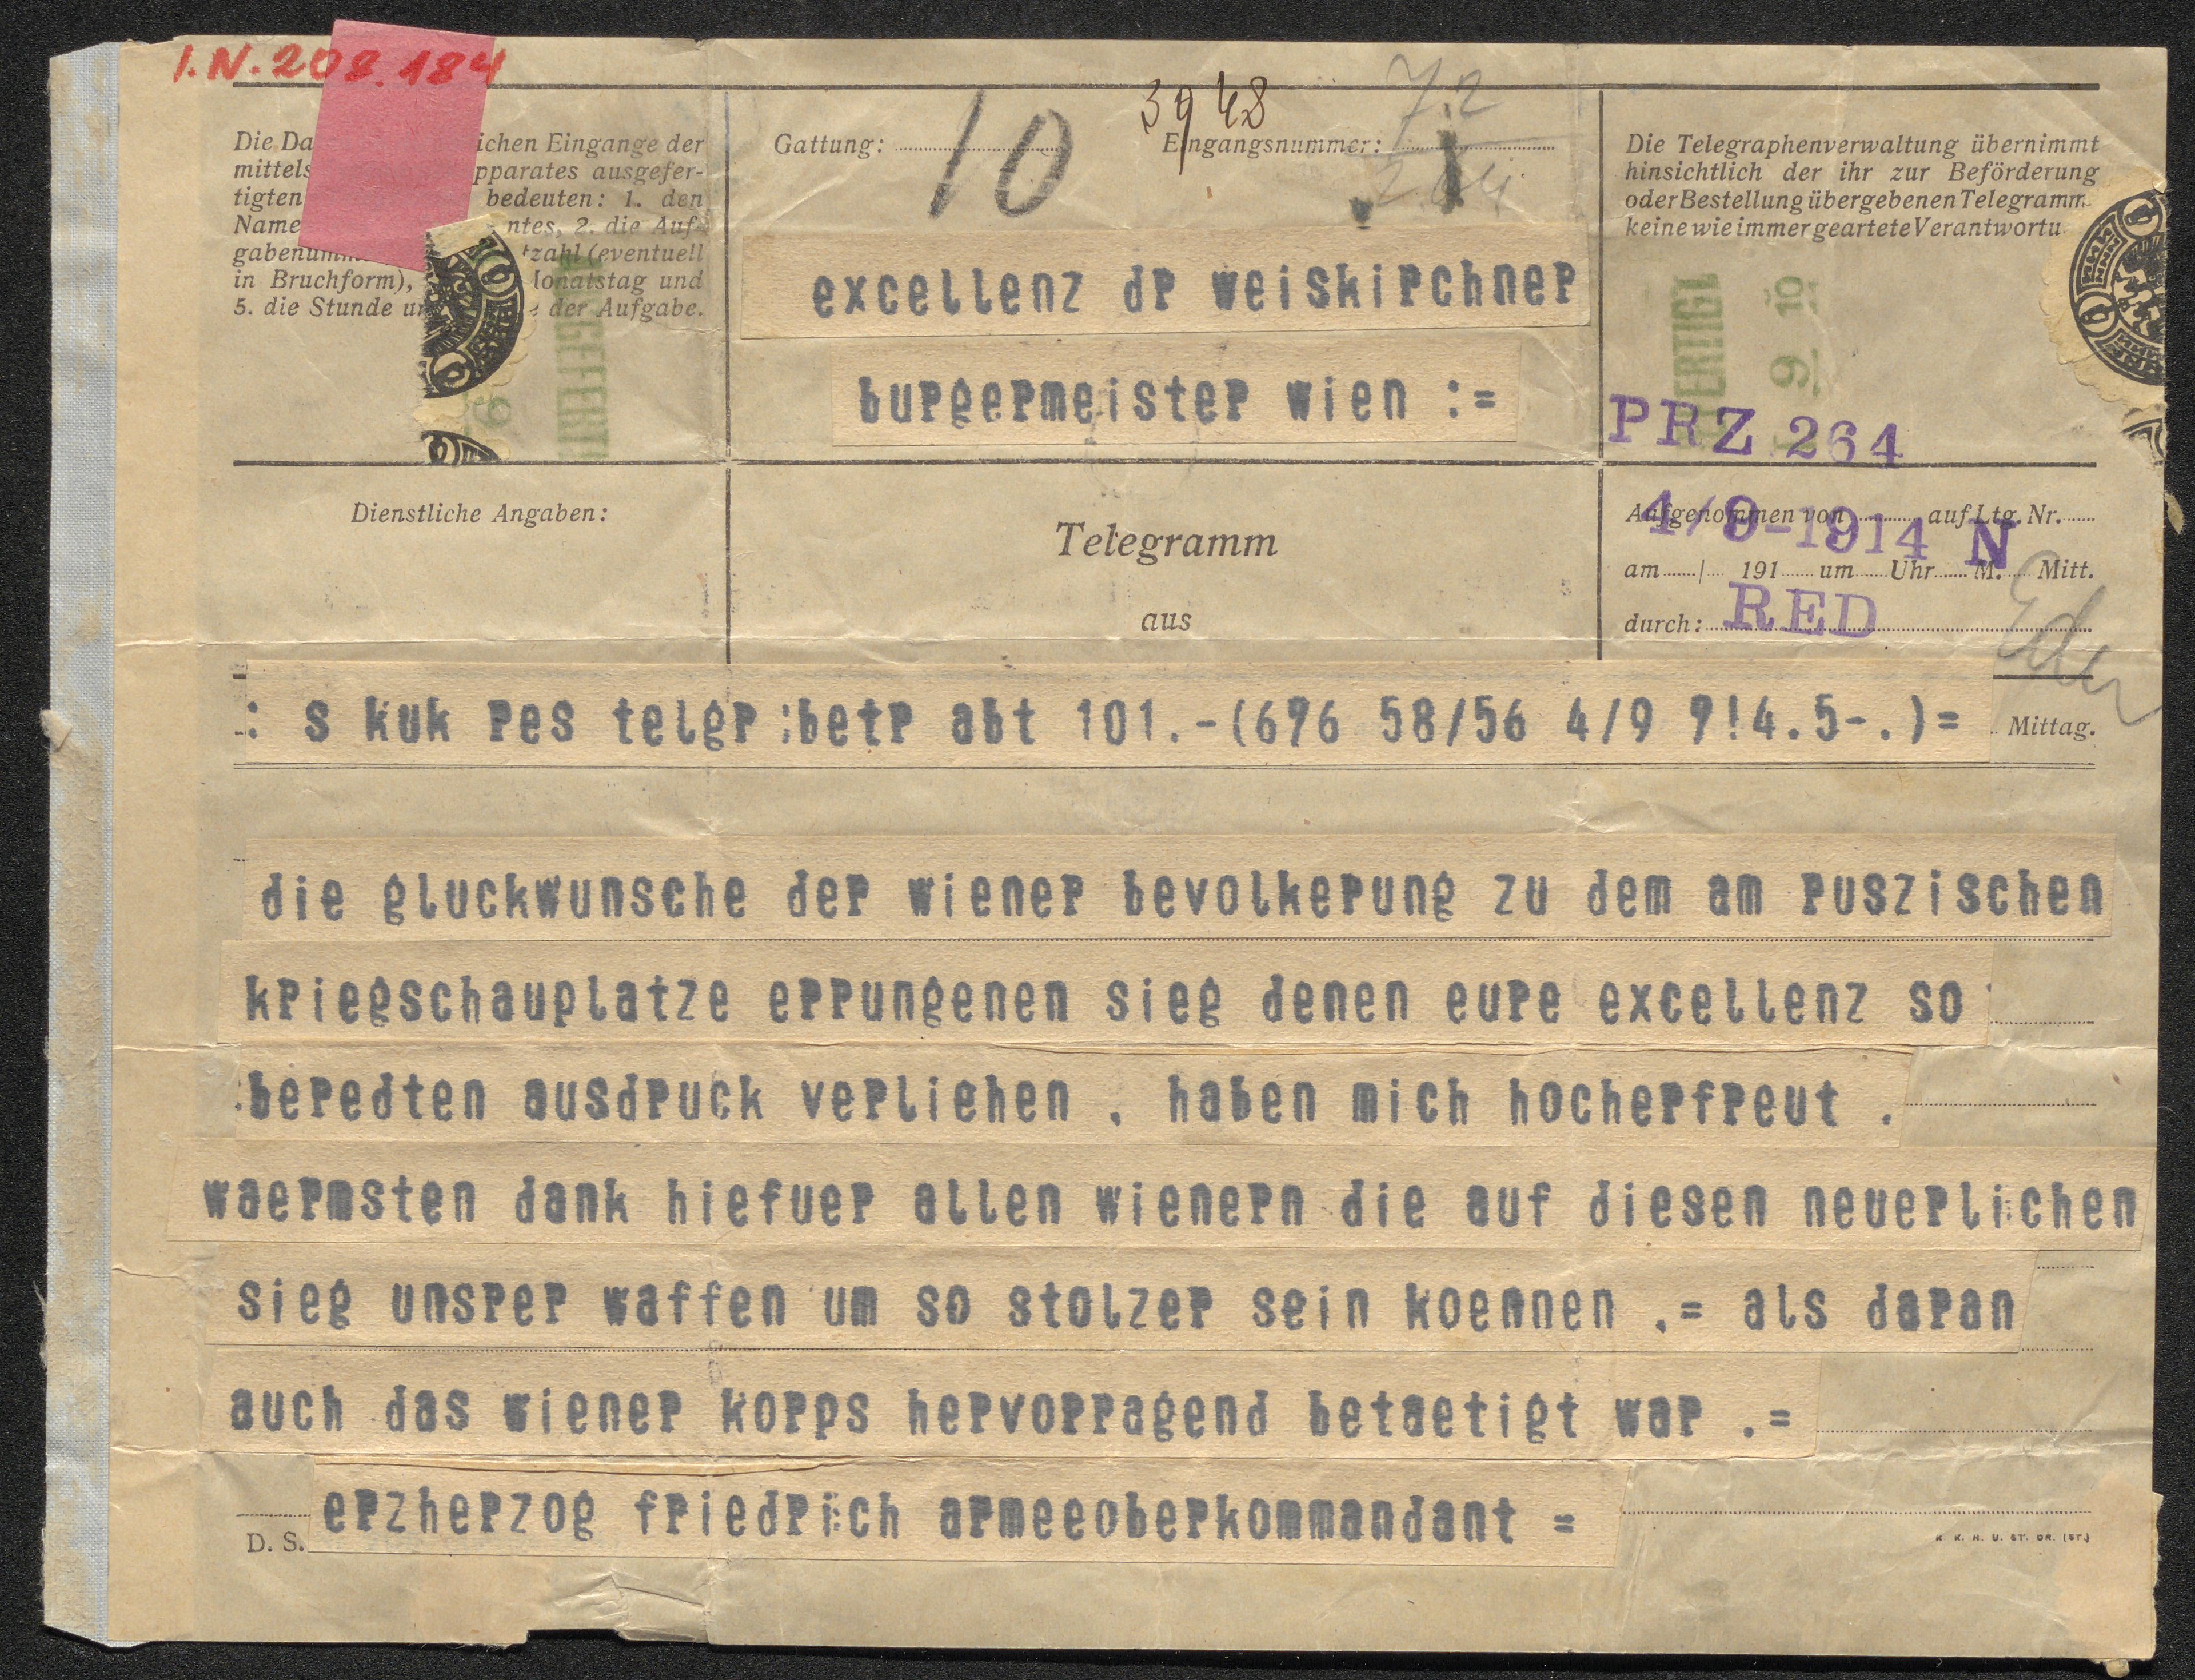 I.N. 208.184
Die Da ichen Eingange der
mittels pparates ausgefer-
tigten bedeuten: 1. den
Name ntes, 2. die Auf-
gabenum tzahl (eventuell
in Bruchform), Monatstag und
5. die Stunde un e der Aufgabe.
Gattung: 10
3948
Eingangsnummer:
72
Die Telegraphenverwaltung übernimmt
hinsichtlich der ihr zur Beförderung
oder Bestellung übergebenen Telegramm
keine wie immer geartete Verantwortu
excellenz dr weiskirchner
burgermeister wien :=
PRZ 264
Dienstliche Angaben:
Telegramm
aus
Aufgenommen von auf Ltg. Nr.
4/9-1914 N
am / 191 um Uhr M. Mitt.
durch: RED
: s kuk res telgr :betr abt 101.-(696 58/56 4/9 9!4.5-.)=
Mittag.
die gluckwunsche der wiener bevolkerung zu dem am ruszischen
kriegschauplatze errungenen sieg denen eure excellenz so
beredten ausdruck verliehen . haben mich hocherfreut .
waermsten dank hiefuer allen wienern die auf diesen neuerlichen
sieg unsrer waffen um so stolzer sein koennen .= als daran
auch das wiener korps hervorragend betaetigt war .=
erzherzog friedrich armeeoberkommandant =
D. S.
K. K. H. U. ST. DR. (ST.)